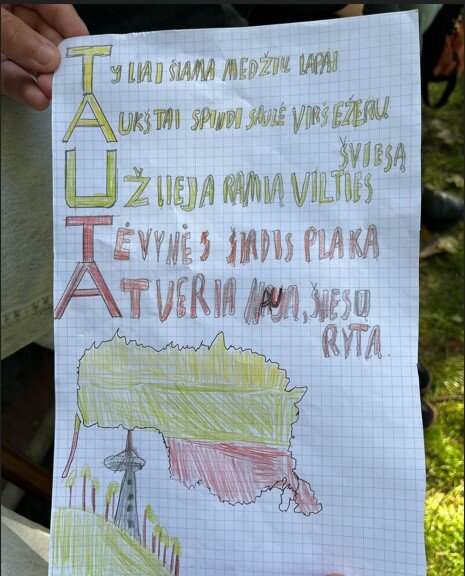 TYLIAI ŠLAMA MEDŽIŲ LAPAI
AUKŠTAI SPINDI SAULĖ VIRŠ EŽERŲ
UŽLIEJA RAMIĄ VILTIES
ŠVIESĄ
TĖVYNĖS ŠIRDIS PLAKA
ATVERIA ŠIESŲ
RYTĄ.